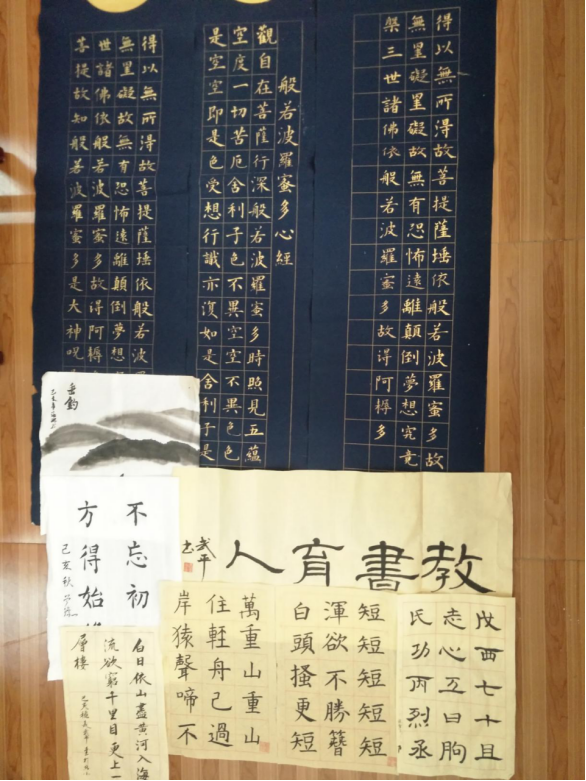 得以無所得故菩提薩埵依般若波羅蜜多故
無罣礙罣礙故無有恐怖遠離顛倒夢想究竟
槃三世諸佛依般若波羅蜜多故得阿耨多
般若波羅蜜多心經
觀自在菩薩行深般若波羅蜜多時照見五蘊
空度一切苦厄舍利子色不異空空不異色色
是空空即是色受想行識亦復如是舍利子是
得以無所得故菩提薩埵依般若波
無罣礙故無有恐怖遠離顛倒夢想
世諸佛依般若波羅蜜多故得阿耨
菩提故知般若波羅蜜多是大神呪
垂釣
己亥年
不忘初
方得始
己亥秋
教書育人
武平
书
戊西七十且
志心五日朐
氏功丙烈丞
短短短短短
渾欲不勝簪
白頭搔更短
萬重山重山
住輕舟已過
岸猿聲啼不
白日依山盡黃河入海
流欲窮千里目更上一
層樓